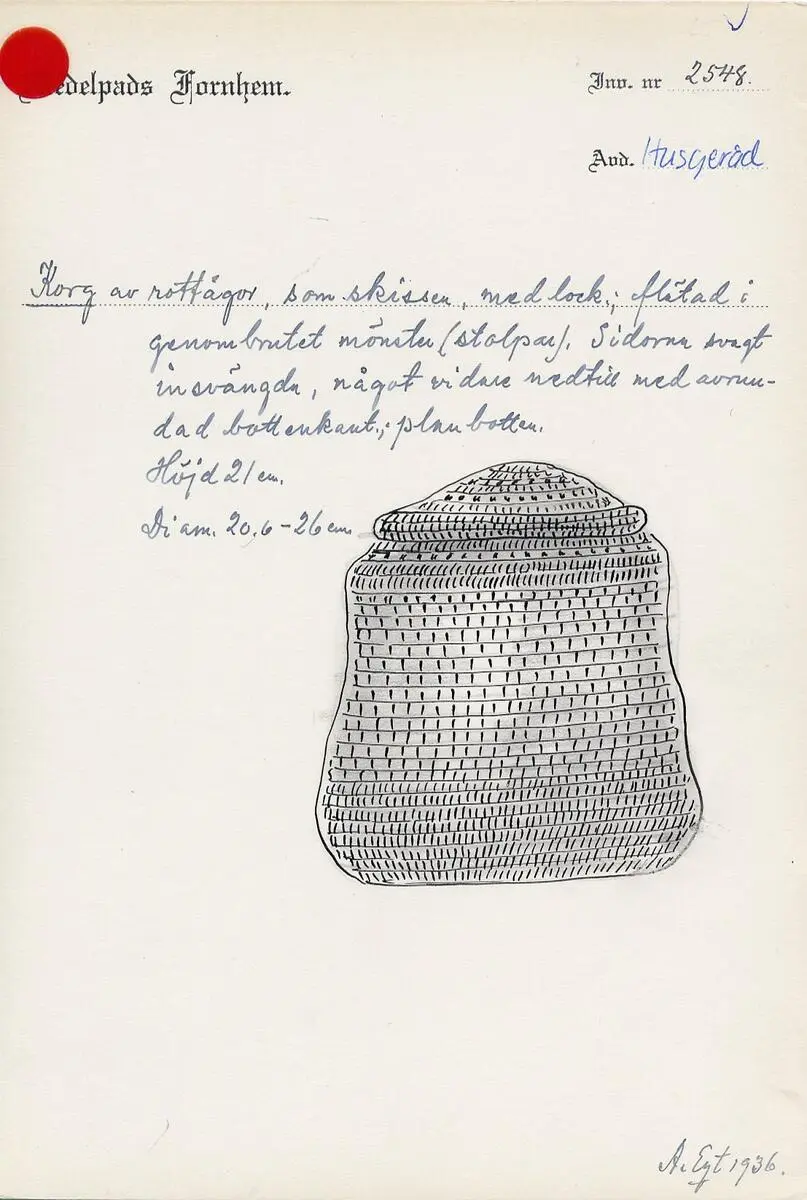 edelpads Fornhem.
Inv. nr 2548.
Avd. Husgeråd
Korg av rottågor, som skissen, med lock; flätad i
genombrutet mönster (stolpar). Sidorna svagt
insvängda, något vidare nedtill med avrun-
dad bottenkant; plan botten.
Höjd 21 cm.
Diam. 20,6 - 26 cm.
A. 1936.